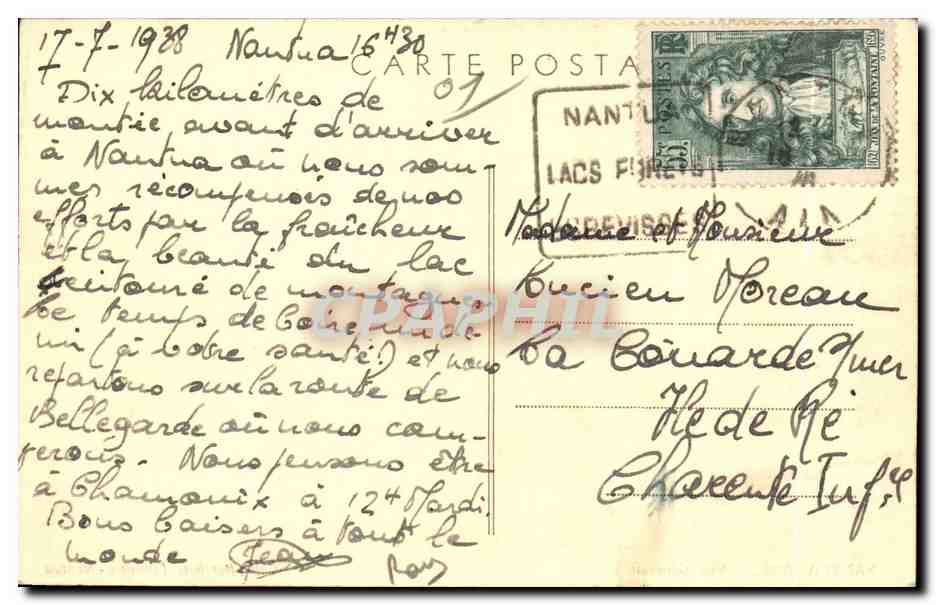 17-7-1938 Nantua 16H30
CARTE POSTA
01
Dix kilomètres de
montée avant d'arriver
à Nantua où nous som-
mes récompensés de nos
efforts par la fraîcheur
et la beauté du lac
entouré de montagnes
Le temps de boire un de-
mi (à votre santé!) et nous
repartons sur la route de
Bellegarde où nous cam-
perons. Nous pensons être
à Chamonix à 12H Mardi.
Bons baisers à tout le
monde Jean
NANTUA
LACS FORETS
ECREVISSES
AIN
POSTES
RF
55c
JEAN DE LA FONTAINE
Madame et Monsieur
Lucien Moreau
La Couarde s/mer
Ile de Ré
Charente Inf.re
CPAPHIL